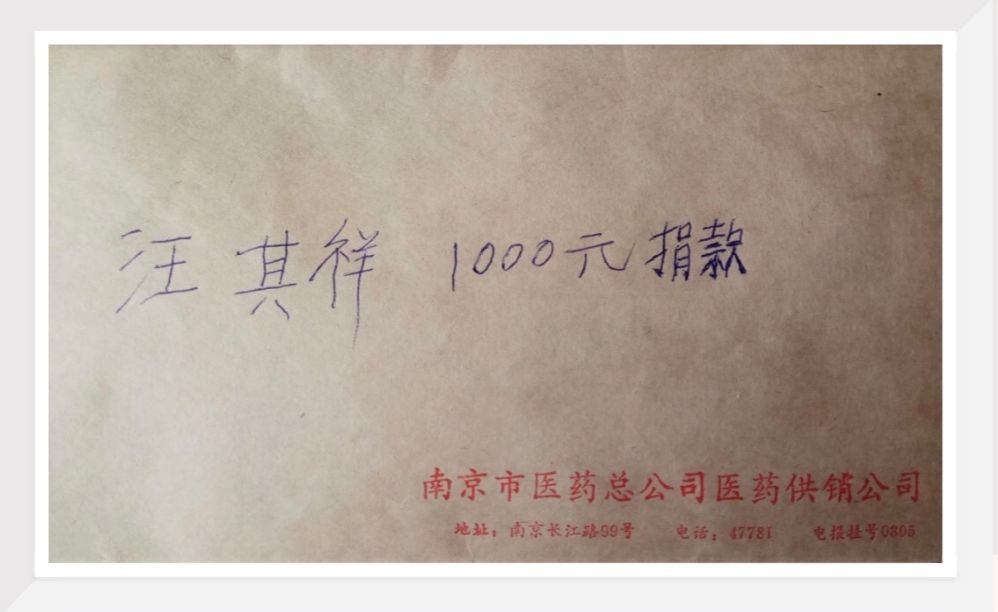 汪其祥 1000元捐款
南京市医药总公司医药供销公司
地址：南京长江路99号 电话：47781 电报挂号0805